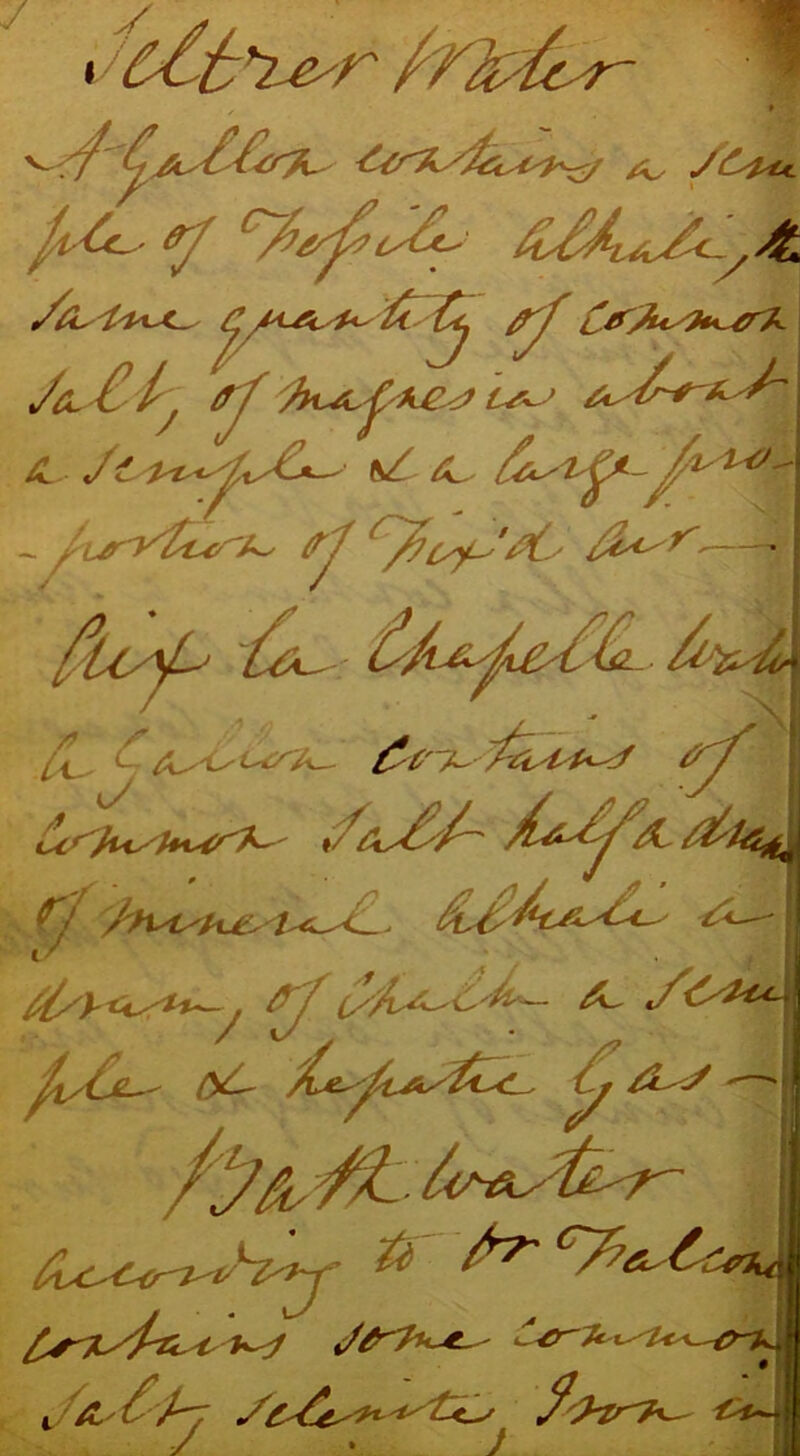 Seltzer Water
A Gallon contains a scru
ple of Fossile Alkali, the
same quantity of Common
Salt, of Magnesia about
a scruple & a large pro-
- portion of Fix'd Air —
Aix la Chapelle Water
A Gallon Contains of
Common Salt half a dram
of mineral Alkali a
dram, of Chalk a scru
ple & hepatic Gas —
Bath Water
According to Dr Falconer
Contains some common
Salt, selenites, Iron in